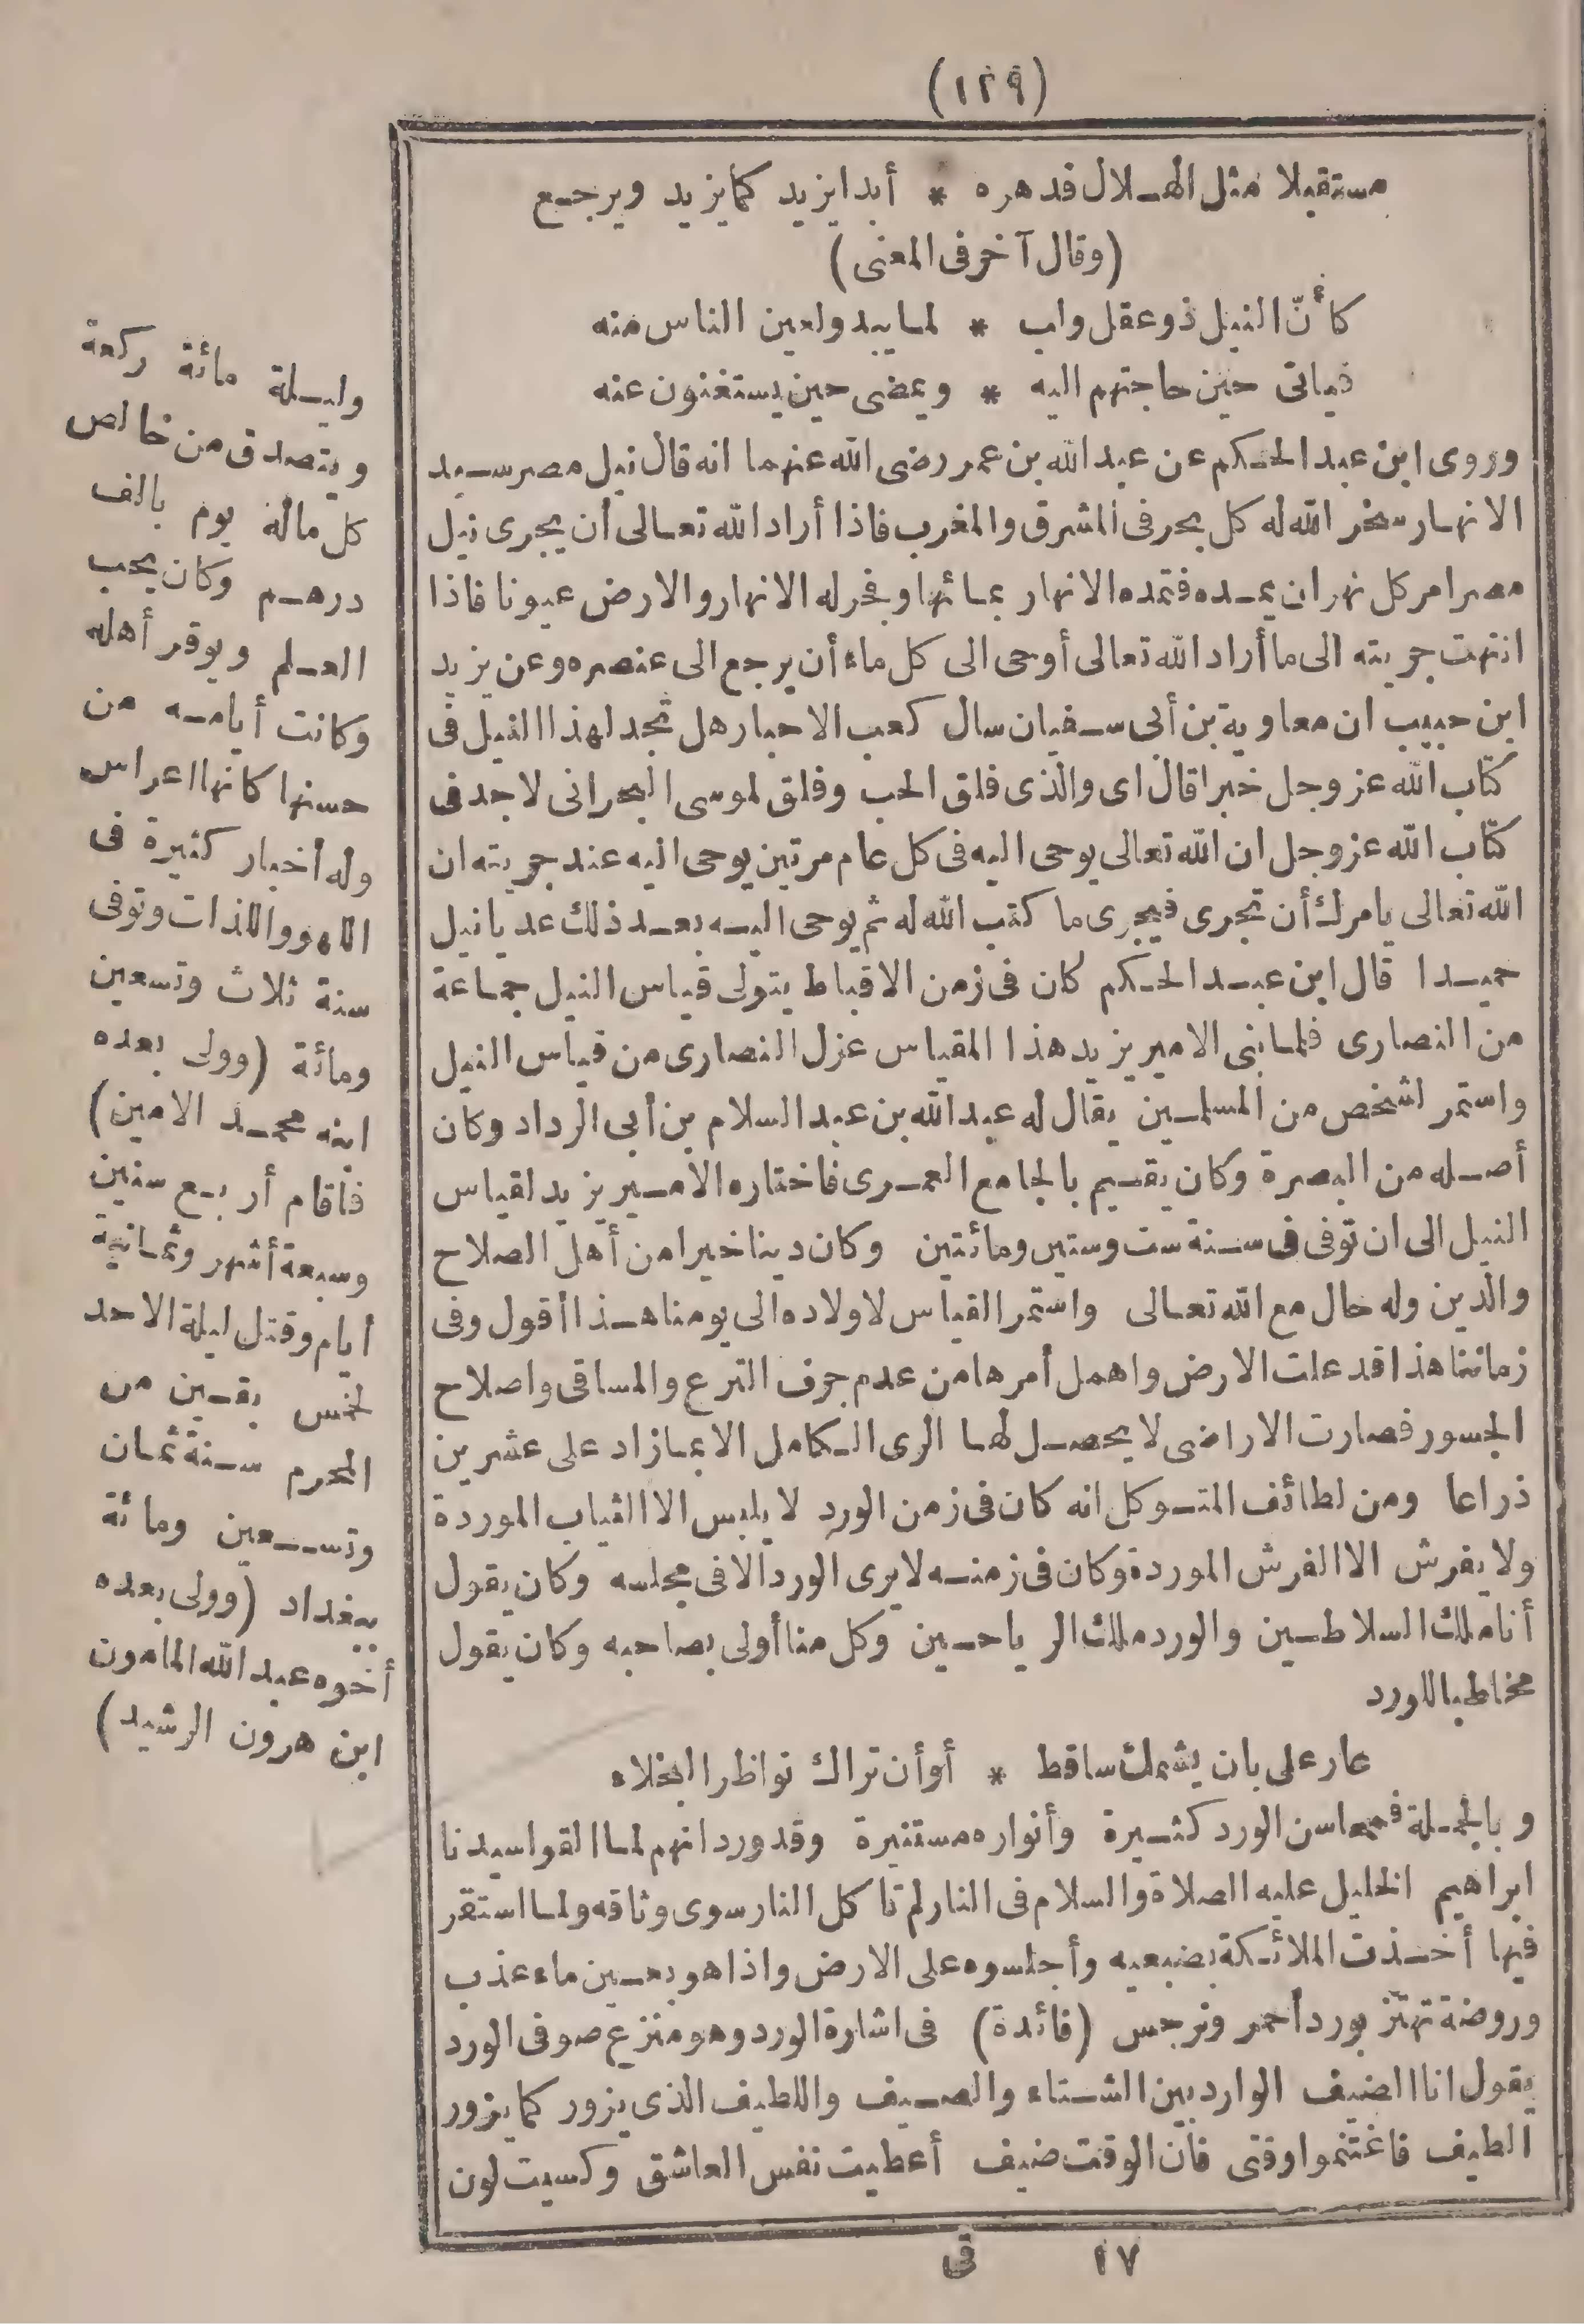 (١٢٩)
مستقبلا مثل الهلال فدهره * أبدا يزيد كما يزيد ويرجع
(وقال آخر فى المعنى)
كأنّ النيل ذو عقل ولب * لما يبدو لعين الناس منه
فيأتى حين حاجتهم اليه * ويمضى حين يستغنون عنه
وروى ابن عبد الحكم عن عبد الله بن عمر رضى الله عنهما انه قال نيل مصر سيد
الانهار سخر الله له كل بحر فى المشرق والمغرب فاذا أراد الله تعالى أن يجرى نيل
مصر امر كل نهر ان يمده فتمده الانهار بمائها وفجر له الانهار والارض عيونا فاذا
انتهت جريته الى ما أراد الله تعالى أوحى الى كل ماء أن يرجع الى عنصره وعن يزيد
ابن حبيب ان معاوية بن أبى سفيان سال كعب الاحبار هل تجد لهذا النيل فى
كتاب الله عز وجل خبرا قال اى والذى فلق الحب وفلق لموسى البحر انى لاجد فى
كتاب الله عز وجل ان الله تعالى يوحى اليه فى كل عام مرتين يوحى اليه عند جريته ان
الله تعالى يامرك أن تجرى فيجرى ما كتب الله له ثم يوحى اليه بعد ذلك عد يا نيل
حميدا قال ابن عبد الحكم كان فى زمن الاقباط يتولى قياس النيل جماعة
من النصارى فلما بنى الامير يزيد هذا المقياس عزل النصارى من قياس النيل
واستمر لشخص من المسلمين يقال له عبد الله بن عبد السلام بن أبى الرداد وكان
أصله من البصرة وكان يقسيم بالجامع العمرى فاختاره الامير يزيد لقياس
النيل الى ان توفى فى سنة ست وستين ومائتين وكان دينا خيرا من أهل الصلاح
والدين وله حال مع الله تعالى واستمر القياس لاولاده الى يومنا هذا أقول وفى
زماننا هذا قد علت الارض واهمل أمرها من عدم جرف الترع والمساقى واصلاح
الجسور فصارت الاراضى لا يحصل لها الرى الكامل الا بما زاد على عشرين
ذراعا ومن لطائف المتوكل انه كان فى زمن الورد لا يلبس الا الثياب الموردة
ولا يفرش الا الفرش الموردة وكان فى زمنه لا يرى الورد الا فى مجلسه وكان يقول
أنا ملك السلاطين والورد ملك الرياحين وكل منا أولى بصاحبه وكان يقول
مخاطبا للورد
عار على بان يشمك ساقط * أو أن تراك نواظر البخلاء
وبالجملة فمحاسن الورد كثيرة وأنواره مستنيرة وقد ورد انهم لما القوا سيدنا
ابراهيم الخليل عليه الصلاة والسلام فى النار لم تاكل النار سوى وثاقه ولما استقر
فيها أخذت الملائكة بضبعيه وأجلسوه على الارض واذا هو بعين ماء عذب
وروضة تهتز بورد أحمر ونرجس (فائدة) فى اشارة الورد وهو منزع صوفى الورد
يقول انا الضيف الوارد بين الشتاء والصيف واللطيف الذى يزور كما يزور
الطيف فاغتنموا وقتى فان الوقت ضيف أعطيت نفس العاشق وكسيت لون
١٧ فى
وليلة مائة ركعة
ويتصدق من خالص
كل ماله يوم بالف
درهم وكان يحب
العلم ويوقر أهله
وكانت أيامه من
حسنها كانها اعراس
وله أخبار كثيرة فى
اللهو واللذات وتوفى
سنة ثلاث وتسعين
ومائة (وولى بعده
ابنه محمد الامين)
فأقام أربع سنين
وسبعة أشهر وثمانية
أيام وقتل ليلة الاحد
لخمس بقين من
المحرم سنة ثمان
وتسعين ومائة
ببغداد (وولى بعده
أخوه عبد الله المامون
ابن هرون الرشيد)